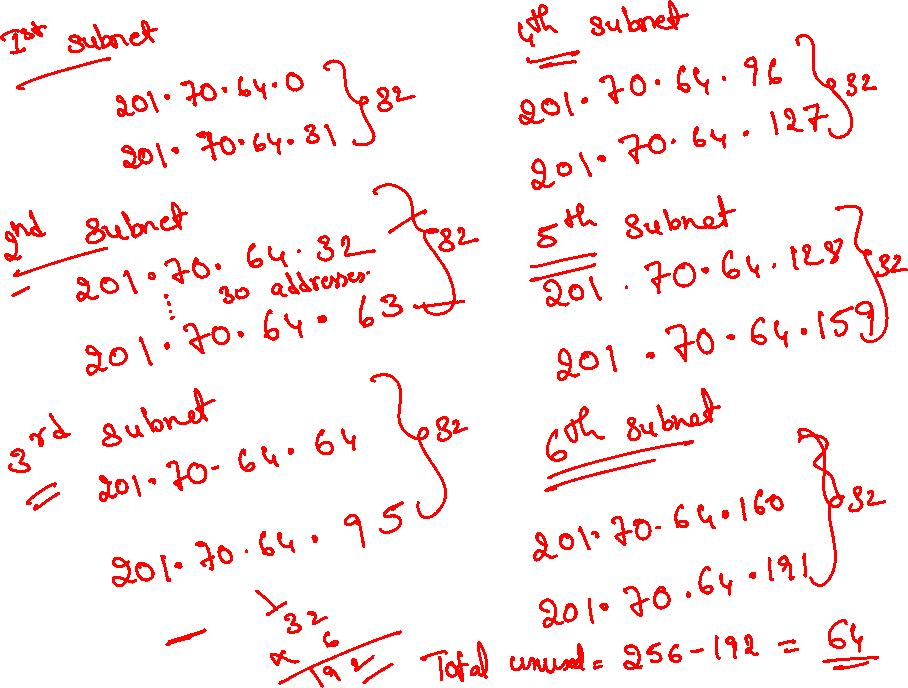 Ist subnet
201.70.64.0
201.70.64.31
} 32
2nd subnet
201.70.64.32
30 addresses.
201.70.64.63
} 32
3rd subnet
201.70.64.64
201.70.64.95
} 32
32
x 6
192
4th subnet
201.70.64.96
201.70.64.127
} 32
5th subnet
201.70.64.128
201.70.64.159
} 32
6th subnet
201.70.64.160
201.70.64.191
} 32
Total unused = 256-192 = 64